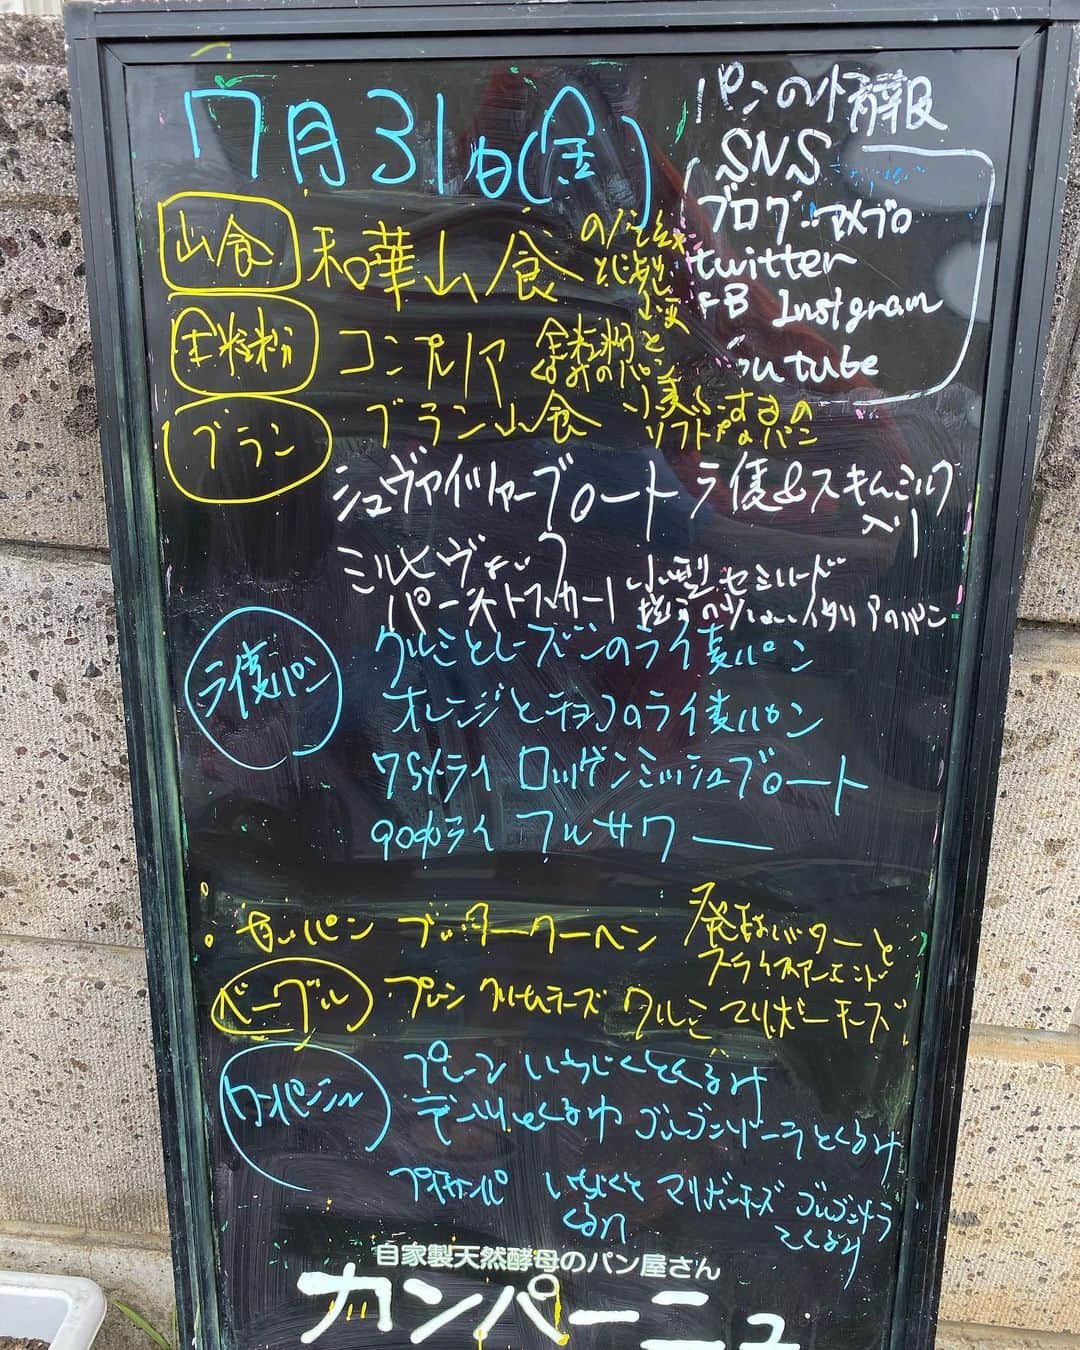 7月31日(金)
パンの情報
SNS
ブログ:アメブロ
twitter
FB Instgram
outube
山食 和華山食
全粒粉 コンプリア 全粒粉と
くるみのパン
ブラン ブラン山食
ソフトな パン
シュヴァイツァーブロート ライ麦&スキムミルク
ミルヒヴェック 小型 セミハード
塩分の少ないイタリアのパン
ライ麦パン クルミとレーズンのライ麦パン
オレンジとチョコのライ麦パン
75%ライ ロッゲンミッシュブロート
90%ライ フルサワー
甘いパン ブッタークーヘン 発酵バターと
スライスアーモンド
ベーグル プレーン クリームチーズ クルミ マリボーチーズ
カンパーニュ プレーン いちじくとくるみ
ゴルゴンゾーラとくるみ
プチカンパ いちじくと
くるみ
マリボーチーズ ゴルゴンゾーラ
とくるみ
自家製天然酵母のパン屋さん
カンパーニュ